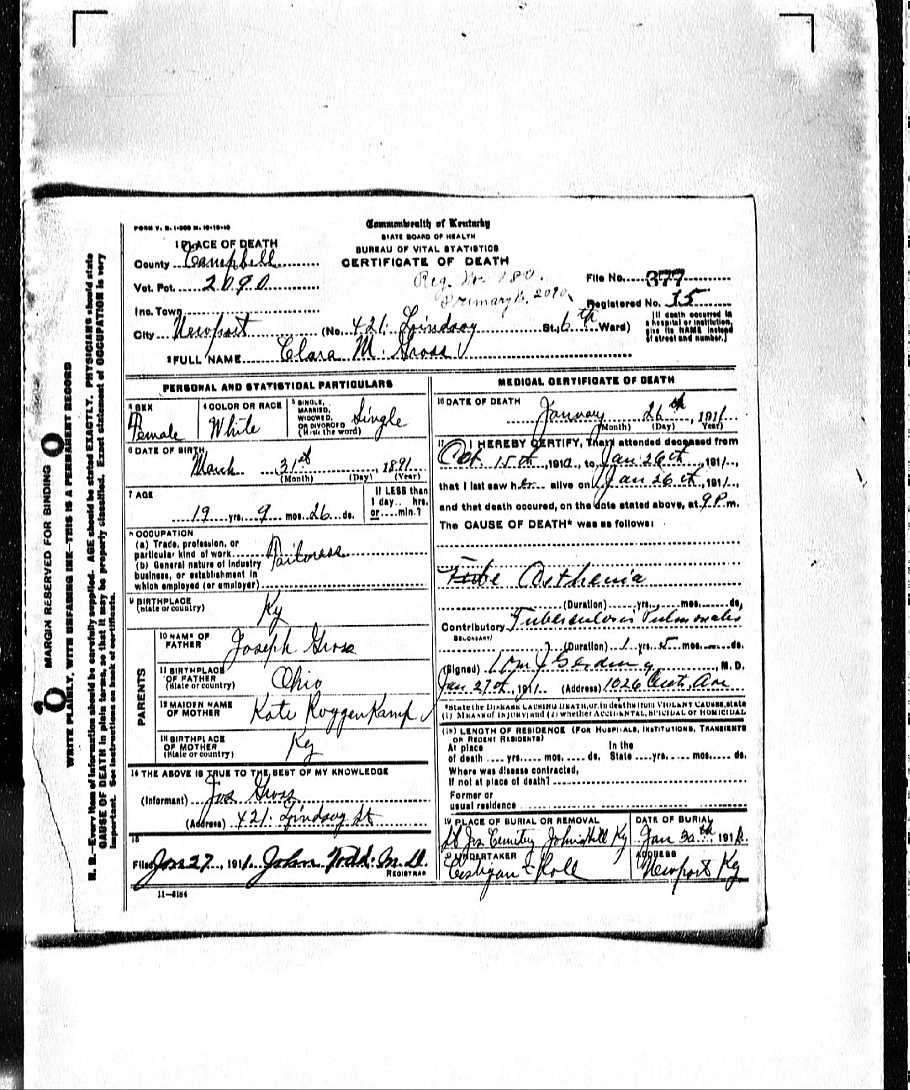 FORM V. S. 1-
Commonwealth of Kentucky
STATE BOARD OF HEALTH
BUREAU OF VITAL STATISTICS
CERTIFICATE OF DEATH
1 PLACE OF DEATH
County Campbell
Vot. Pct. 2090
Inc. Town
City Newport (No. 421 Lindsay St., 6th Ward)
Reg. No. 180.
Primary 2090
File No. 377
Registered No. 15
(If death occurred in
a hospital or institution,
give its NAME instead
of street and number.)
2 FULL NAME Clara M. Gross
PERSONAL AND STATISTICAL PARTICULARS
3 SEX
Female
4 COLOR OR RACE
White
5 SINGLE,
MARRIED,
WIDOWED,
OR DIVORCED
(Write the word)
Single
6 DATE OF BIRTH
March 31st, 1891
(Month) (Day) (Year)
7 AGE
19 yrs. 9 mos. 26 ds.
If LESS than
1 day... hrs.
or....min.?
8 OCCUPATION
(a) Trade, profession, or
particular kind of work Tailoress
(b) General nature of industry
business, or establishment in
which employed (or employer)
9 BIRTHPLACE
(State or country) Ky
PARENTS
10 NAME OF
FATHER
Joseph Gross
11 BIRTHPLACE
OF FATHER
(State or country)
Ohio
12 MAIDEN NAME
OF MOTHER
Kate Roggenkamp
13 BIRTHPLACE
OF MOTHER
(State or country)
Ky
14 THE ABOVE IS TRUE TO THE BEST OF MY KNOWLEDGE
(Informant) Jos Gross
(Address) 421 Lindsay St
15
Filed Jan 27, 1911. John Todd M.D.
REGISTRAR
11—5184
MEDICAL CERTIFICATE OF DEATH
16 DATE OF DEATH
January 26th, 1911
(Month) (Day) (Year)
17 I HEREBY CERTIFY, That I attended deceased from
Oct. 15th, 1910, to Jan 26th, 1911,
that I last saw her alive on Jan 26th, 1911,
and that death occured, on the date stated above, at 9 P. m.
The CAUSE OF DEATH* was as follows:
Asthenia
(Duration) yrs. mos. ds.
Contributory Tuberculosis Pulmonalis
(Duration) 1 yrs. 5 mos. ds.
(Signed) M. D.
Jan 27th, 1911. (Address) 1026 Ave
*State the DISEASE CAUSING DEATH, or, in deaths from VIOLENT CAUSES, state
(1) MEANS of INJURY; and (2) whether ACCIDENTAL, SUICIDAL or HOMICIDAL
(18) LENGTH OF RESIDENCE (FOR HOSPITALS, INSTITUTIONS, TRANSIENTS
OR RECENT RESIDENTS)
At place
of death .... yrs. .... mos. .... ds.
In the
State ....yrs. .... mos. .... ds.
Where was disease contracted,
If not at place of death?
Former or
usual residence
19 PLACE OF BURIAL OR REMOVAL
St Jos Cemetery Johns Hill Ky
DATE OF BURIAL
Jan 30th 191
20 UNDERTAKER
Costigan & Roll
ADDRESS
Newport Ky
MARGIN RESERVED FOR BINDING
WRITE PLAINLY, WITH UNFADING INK—THIS IS A PERMANENT RECORD
N. B.—Every item of information should be carefully supplied. AGE should be stated EXACTLY. PHYSICIANS should state
CAUSE OF DEATH in plain terms, so that it may be properly classified. Exact statement of OCCUPATION is very
important. See instructions on back of certificate.